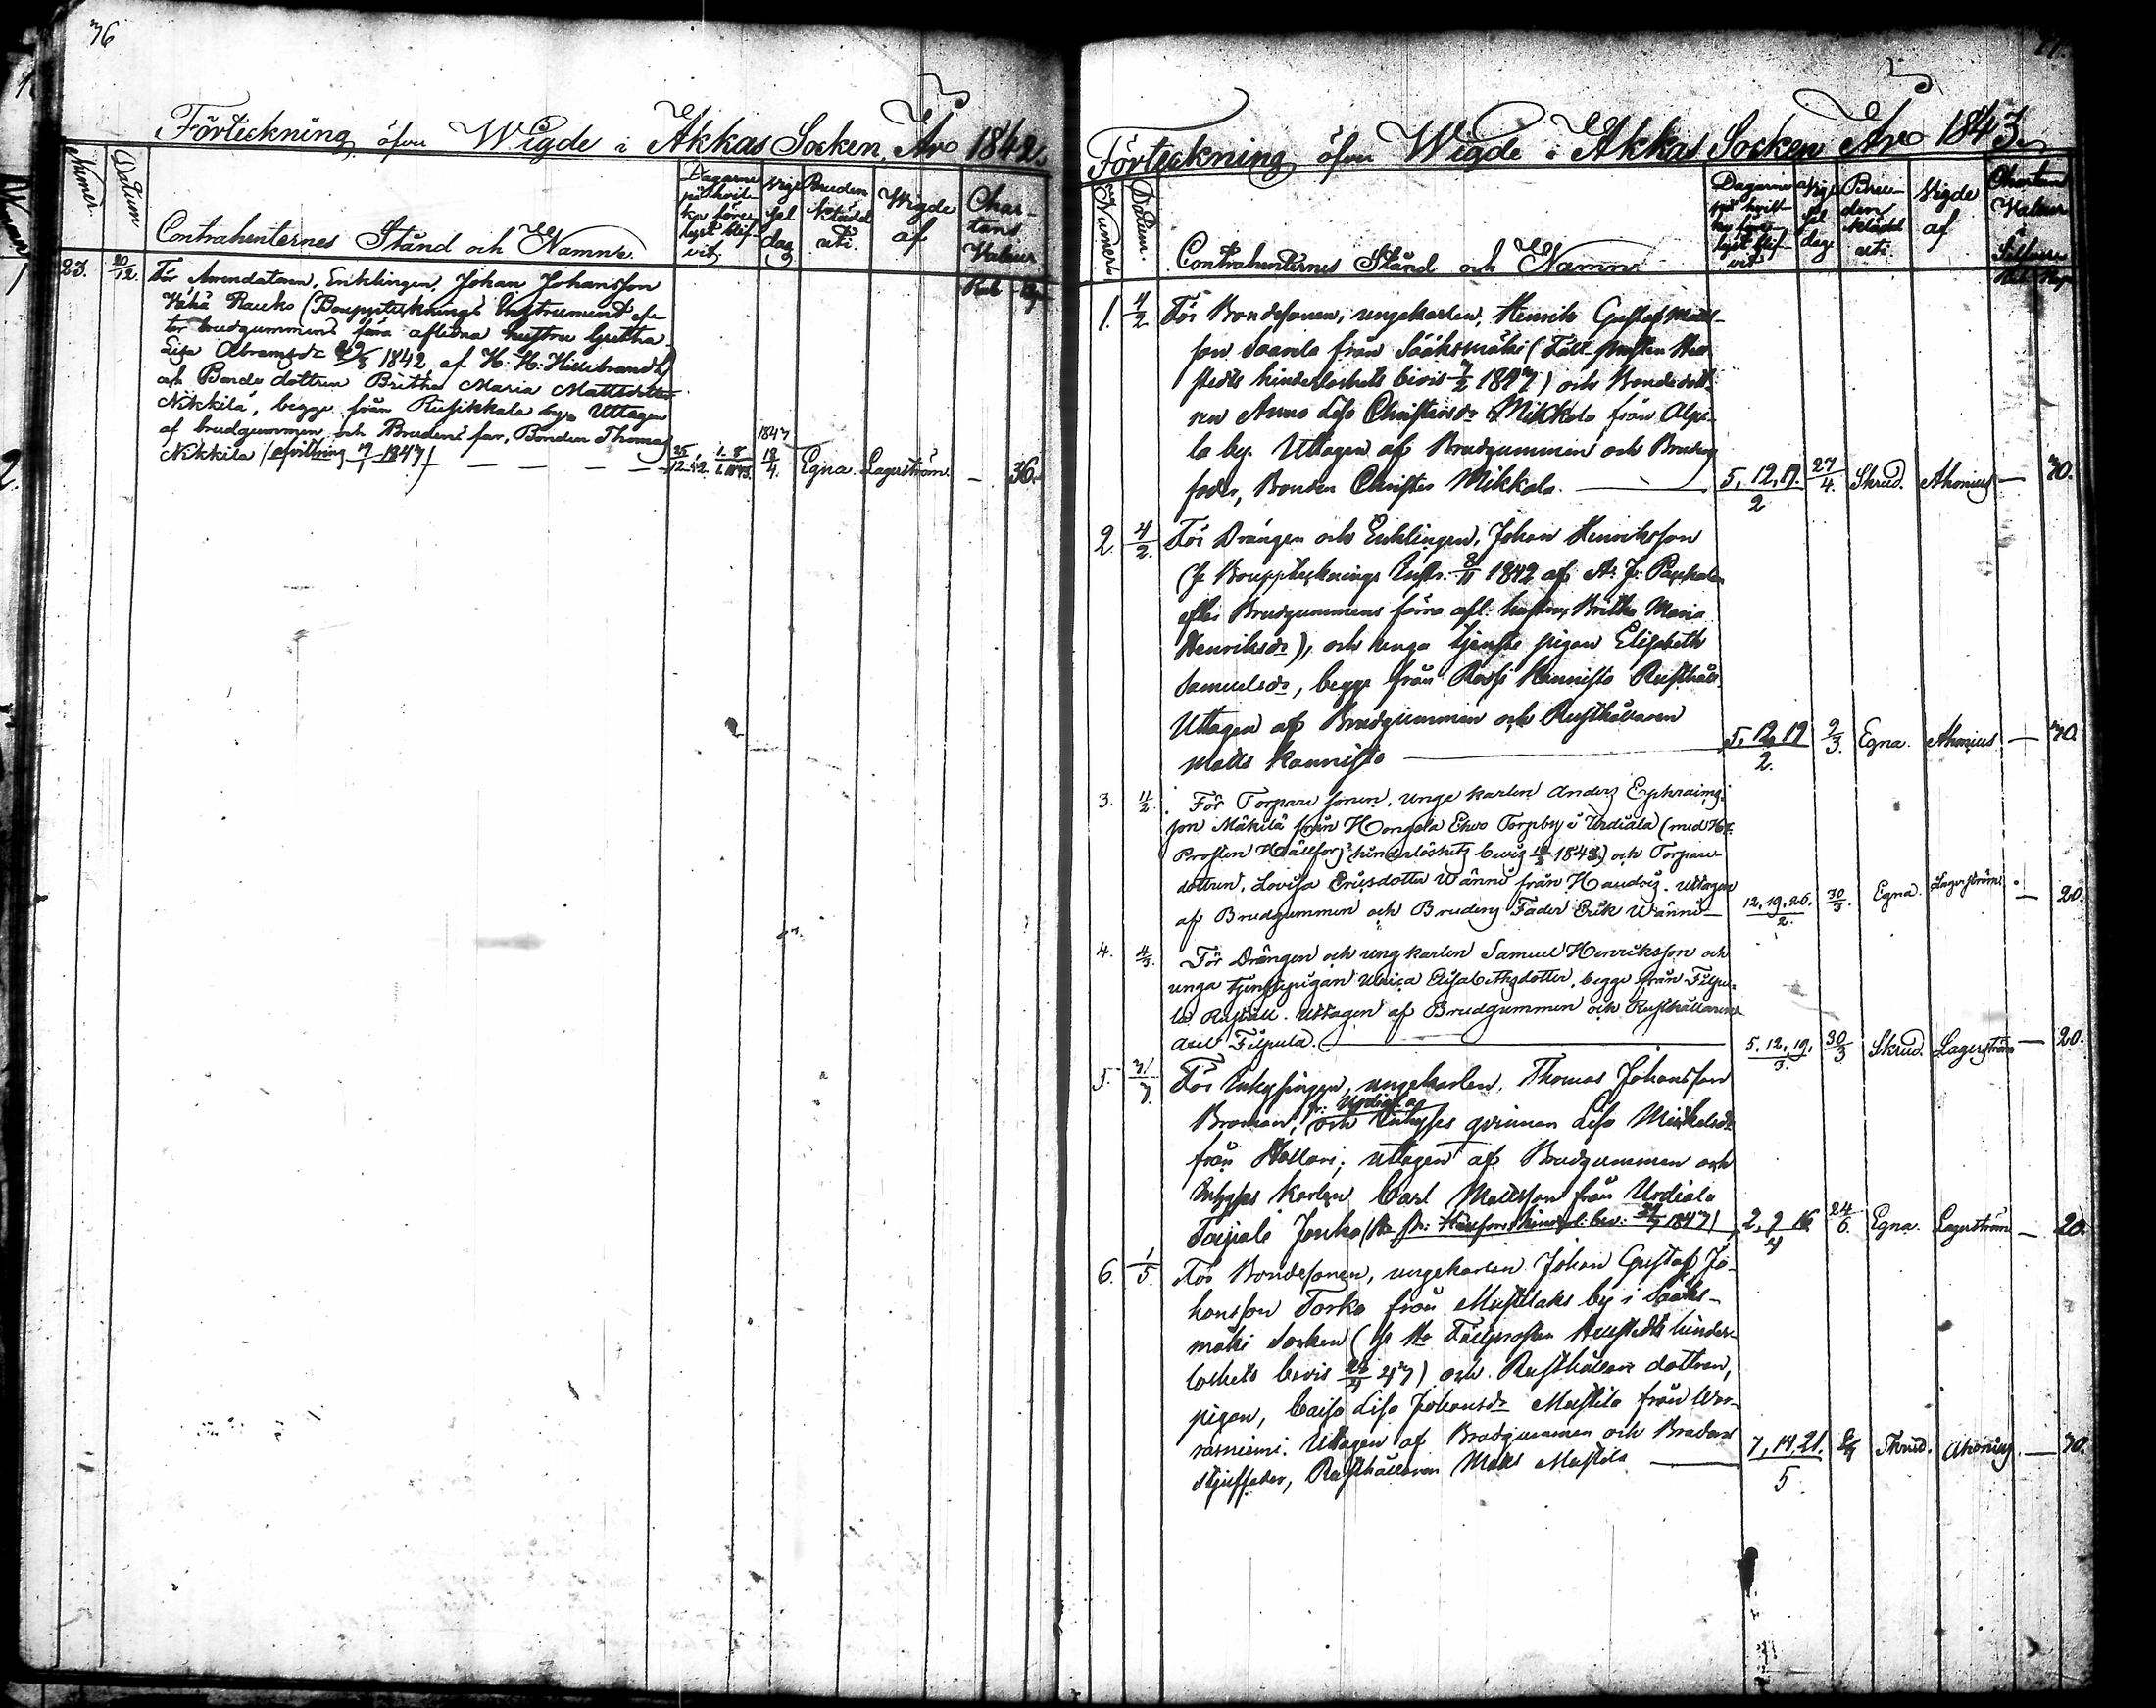 76
Förteckning öfver Wigde i Akkas Socken, År 1842.
Numer.
Datum
Contrahenternes Stånd och Namn
Dagarne på hvilka förer lyst blifvit.
Vigsel dag
Bruden klädd uti.
Wigde af
Chartans Valeur
Rub Kop
23. 20/12. För Arendatorn, Enklingen, Johan Johansson
Vähä Rauko (Bouppteknings Instrument ef-
ter brudgummens förra aflidna hustru Gretha
Lisa Abramsdr 1842, af H: H: Hillebrandt)
och Bonde dottren Britha Maria Mattsdotter
Nikkilä, begge från Kusikkala by. Uttagen
af brudgummen och Brudens far, Bonden Thomas
Nikkilä (afvittring 1847) 1847 18/4. Egna. Lagerström. — 36.
Förteckning öfver Wigde i Akkas Socken År 1843.
Numer.
Datum.
Contrahenternes Stånd och Namn
Dagarne på hvilka förer lyst blifvit
Vigsel dag
Bruden klädd uti.
Vigde af
Chartans Valeur i Silfver
Rub. Kop
1. 4/2 För Bondesonen, ungekarlen, Henrik Gustaf Matts-
son Saarela från Sääksmäki (Fält prosten Hell
stedts hinderloshets bevis 7/2 1847) och Bondedott-
ren Anna Lisa Christersdr Mikkola från
la by. Uttagen af Brudgummen och Brudens
fader, Bonden Christer Mikkola. — 5, 12, 19./2 27/4. Skrud. Ahonius — 70.
2. 4/2. För Drängen och Enklingen, Johan Henriksson
(Je Bouppteknings Instr. 8/11 1842 af A: J:
efter Brudgummens förra afl: hustru, Britha Maria
Henriksdr), och unga tjenste pigan Elisabeth
Samuelsdr, begge från Rossi Kannisto Rusthåll.
Uttagen af Brudgummen och Rusthållaren
Matts Kannisto — 5, 12, 19/2. 2/3. Egna. Ahonius — 70.
3. 11/2. För Torpare sonen, unge karlen Anders Ephraims-
son Mäkilä från Hongola Torpby i Urdiala (med Hr
Prosten Hällfors' hinderlöshets bevis 1843) och Torpare-
dottren, Lovisa Ericsdotter Wännı från Haudois. Uttagen
af Brudgummen och Brudens Fader Erik Wännı — 12, 19, 26./2. 30/3. Egna. Lagerström. — 20.
4. 4/3. För Drängen och ungkarlen Samuel Henriksson och
unga tjenstepigan Ulrica Elisabethsdotter, begge från Filpu-
la Rusthåll. Uttagen af Brudgummen och Rusthållaren
Axel Filpula. — 5, 12, 19./3. 30/3 Skrud. Lagerström — 20.
5. För Inhysingen, ungekarlen, Thomas Johansson
Broman, fr: Urdiala och Inhyses qvinnan Lisa Michelsdr
från Hellari; uttagen af Brudgummen och
Inhyses karlen Carl Mattsson från Urdiala
2, 9, 16/4 24/6. Egna. Lagerström — 20.
6. 1/5. För Bondesonen, ungekarlen Johan Gustaf Jo-
hansson Torko från by i Sääks-
mäki Socken (Je Hr Fältprosten Hellstedts hinder-
loshets bevis 47) och Rusthållare dottren,
pigan, Caisa Lisa Johansdr Mustila från War-
rasniemi. Uttagen af Brudgummen och Brudens
stjuffader, Rusthållaren Matts Mustila — 7, 14, 21./5. Skrud. Ahonius. — 70.